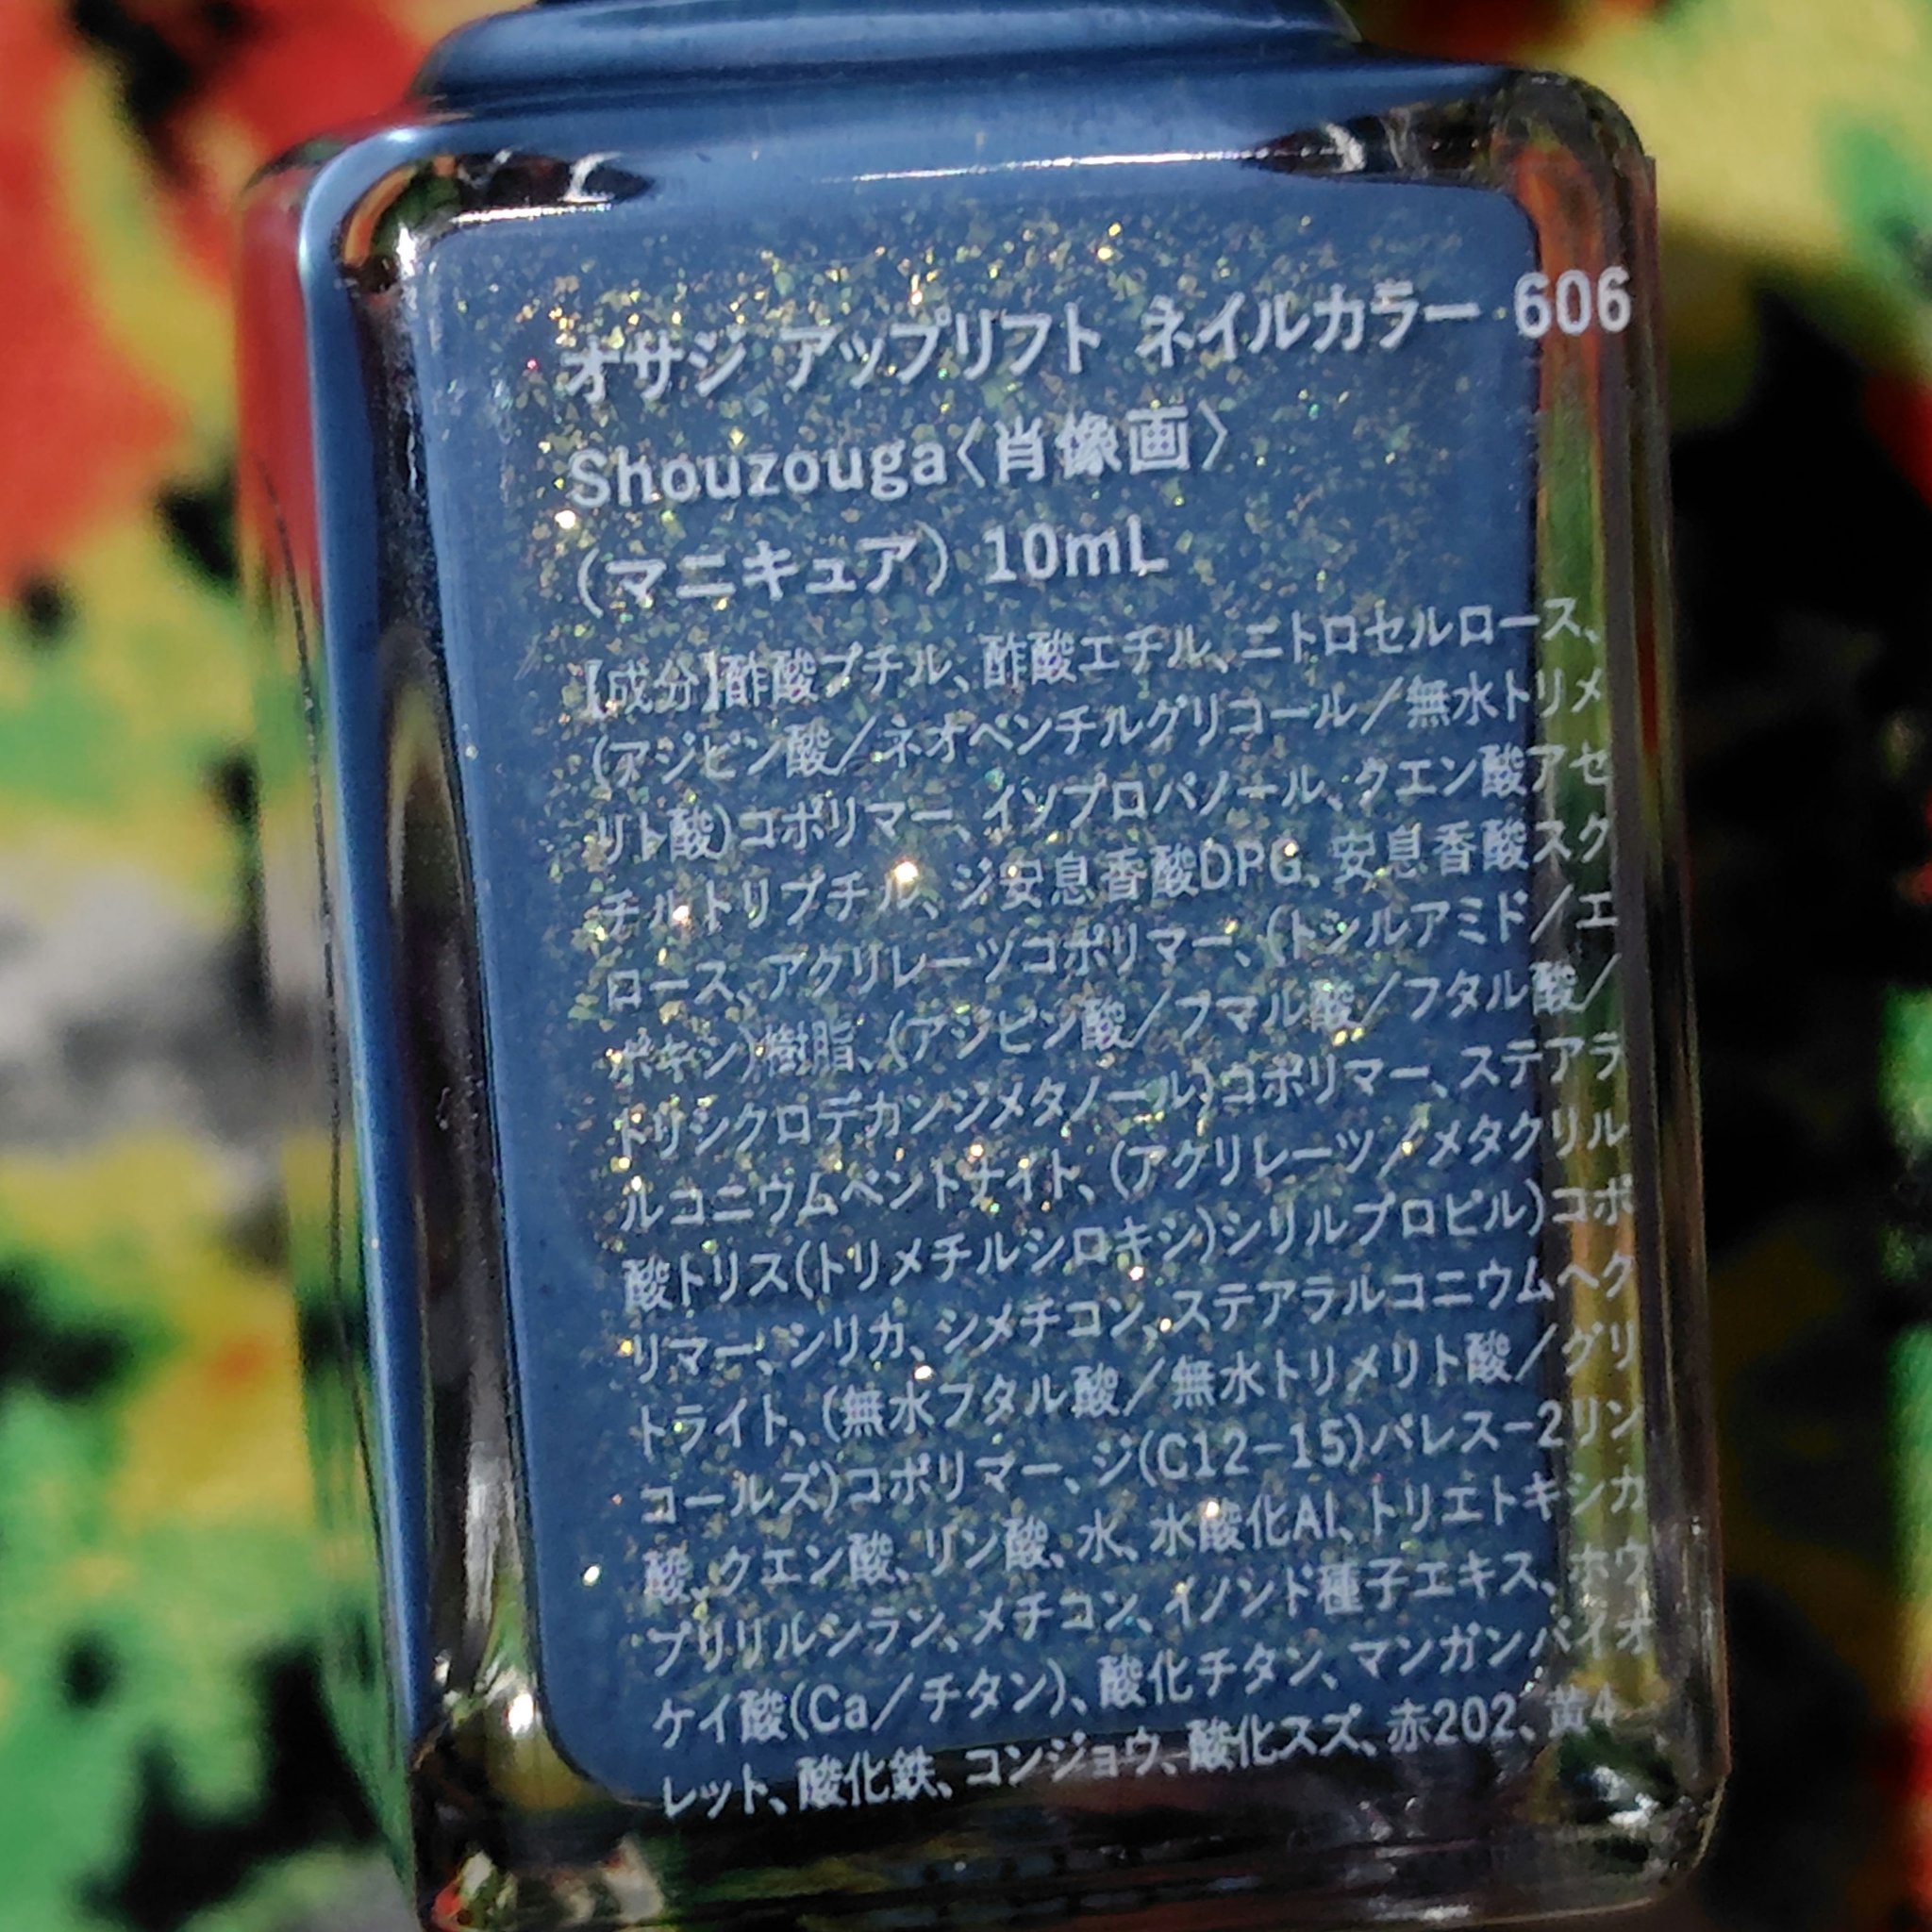 オサジ アップリフト ネイルカラー 606
Shouzouga〈肖像画〉
(マニキュア) 10mL
【成分】酢酸ブチル、酢酸エチル、ニトロセルロース、
(アジピン酸/ネオペンチルグリコール/無水トリメ
リト酸)コポリマー、イソプロパノール、クエン酸アセ
チルトリブチル、ジ安息香酸DPG、安息香酸スク
ロース、アクリレーツコポリマー、(トシルアミド/エ
ポキシ)樹脂、(アジピン酸/フマル酸/フタル酸/
トリシクロデカンジメタノール)コポリマー、ステアラ
ルコニウムベントナイト、(アクリレーツ/メタクリル
酸トリス(トリメチルシロキシ)シリルプロピル)コポ
リマー、シリカ、シメチコン、ステアラルコニウムヘク
トライト、(無水フタル酸/無水トリメリト酸/グリ
コールズ)コポリマー、ジ(C12-15)パレス-2リン
酸、クエン酸、リン酸、水、水酸化Al、トリエトキシカ
プリリルシラン、メチコン、イノンド種子エキス、ホウ
ケイ酸(Ca/チタン)、酸化チタン、マンガンバイオ
レット、酸化鉄、コンジョウ、酸化スズ、赤202、黄4